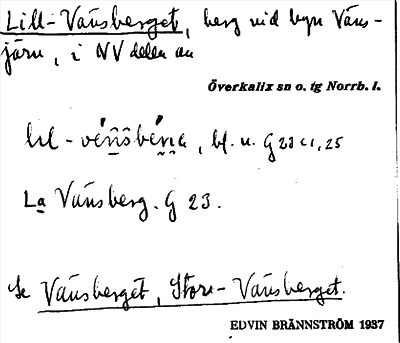 Lill-Vänsberget, berg vid byn Väns-
järv, i NV delen av
Överkalix sn o. tg Norrb. l.
bl. u. G 23 c1, 25
La Vänsberg. G 23.
Se Vänsberget, Stora-Vänsberget.
EDVIN BRÄNNSTRÖM 1937